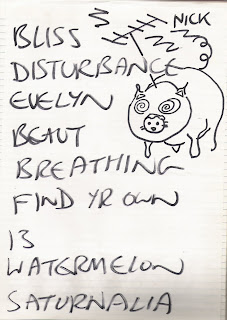 NICK
BLISS
DISTURBANCE
EVELYN
BEAUT
BREATHING
FIND YR OWN
13
WATERMELON
SATURNALIA